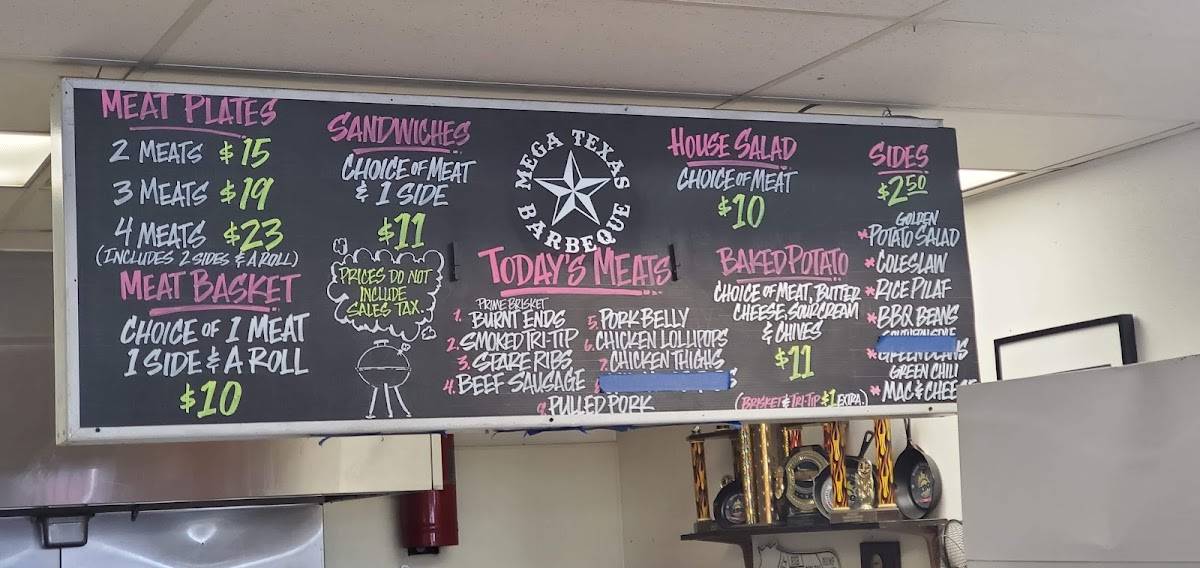 MEAT PLATES
2 MEATS $15
3 MEATS $19
4 MEATS $23
(INCLUDES 2 SIDES & A ROLL)
MEAT BASKET
CHOICE OF 1 MEAT
1 SIDE & A ROLL
$10
SANDWICHES
CHOICE OF MEAT
& 1 SIDE
$11
PRICES DO NOT
INCLUDE
SALES TAX.
MEGA TEXAS
BARBEQUE
TODAY'S MEATS
PRIME BRISKET
1. BURNT ENDS
2. SMOKED TRI-TIP
3. SPARE RIBS
4. BEEF SAUSAGE
5. PORK BELLY
6. CHICKEN LOLLIPOPS
7. CHICKEN THIGHS
9. PULLED PORK
HOUSE SALAD
CHOICE OF MEAT
$10
BAKED POTATO
CHOICE OF MEAT, BUTTER
CHEESE, SOUR CREAM
& CHIVES
$11
(BRISKET & TRI-TIP $1 EXTRA.)
SIDES
$2.50
GOLDEN
* POTATO SALAD
* COLESLAW
* RICE PILAF
* BBQ BEANS
* GREEN BEANS
GREEN CHILI
* MAC & CHEESE